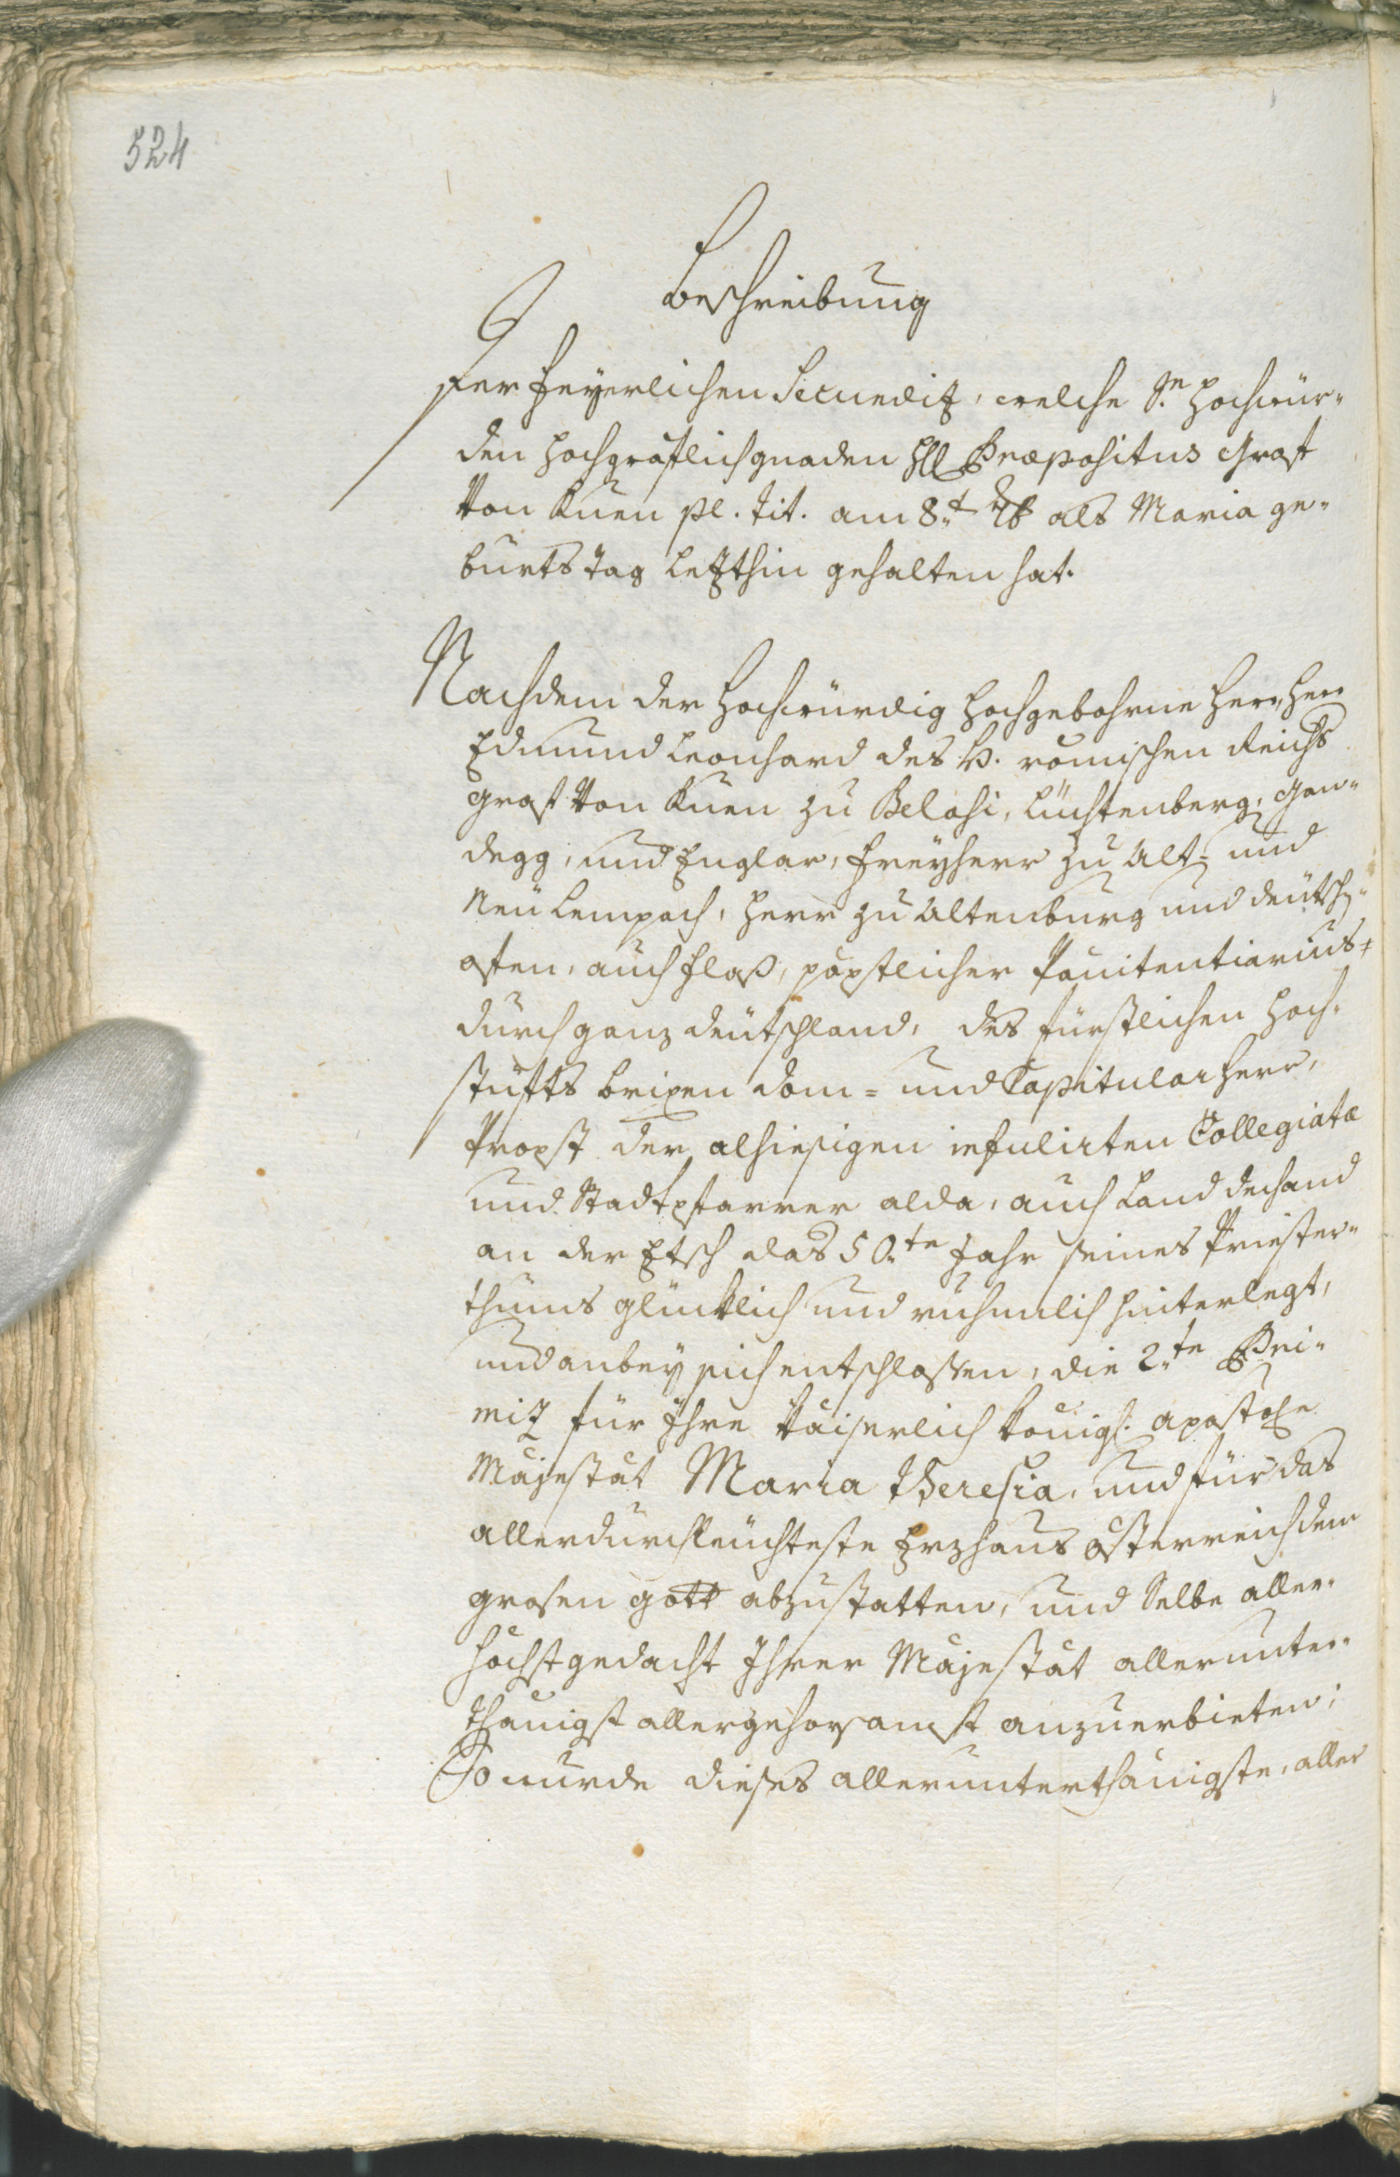 524
Beschreibung
Der feyerlichen Secundiz, welche S.e Hochwür-
den hochgräflich gnaden Præpositus Graf
von Kuen pl. tit. am 8.t 7b als Maria ge-
burts tag letzthin gehalten hat.
Nachdem der hochwürdig hochgebohrne Herr, Herr
Edmund Leonhard des H. römischen Reichs
graf von Kuen zu Belasi, Liechtenberg, Gan-
degg, und Englar, Freyherr zu Alt- und
Neü Lempach, Herr zu Altenburg und deütsch-
ofen, auch Flaß, päpstlicher Pœnitentiarius
durch ganz deütschland, des fürstlichen Hoch-
stüfts brixen dom- und Capitularherr,
Propst der alhiesigen infulirten Collegiatæ
und Stadtpfarrer alda, auch Land dechand
an der Etsch das 50.te Jahr seines Priester-
thums glücklich und ruhmlich hinterlegt,
und anbey sich entschlossen, die 2.te Pri-
miz für Ihre kaiserlich königl. apostole
Majestät Maria Theresia, und für das
allerdurchleüchteste Erzhaus österreich dem
grosen gott abzustatten, und Selbe aller-
höchstgedacht Ihrer Majestät allerunter-
thänigst allergehorsamst anzuerbieten;
So wurde dieses allerunterthänigste, aller